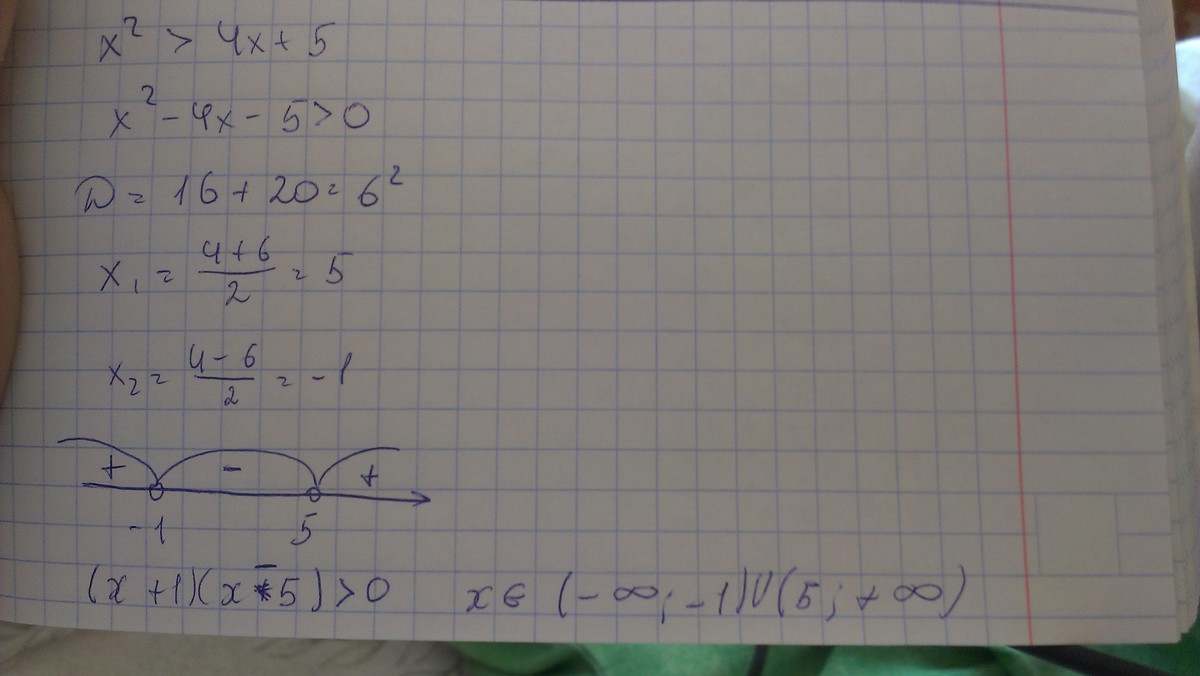 x² > 4x + 5
x² - 4x - 5 > 0
D = 16 + 20 = 6²
x₁ = (4 + 6)/2 = 5
x₂ = (4 - 6)/2 = -1
+ - +
-1 5
(x + 1)(x - 5) > 0 x ∈ (-∞; -1) U (5; +∞)